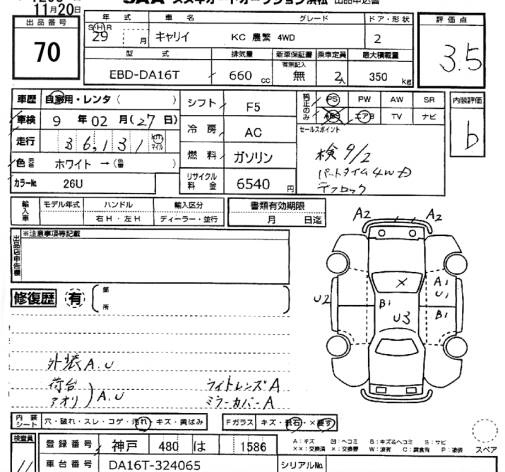 11月20日
SAA スズキオートオークション浜松 出品申込書
出品番号
70
年式 車名 グレード ドア・形状
S H R
29 年 月 キャリイ KC 農繁 4WD 2
型式 排気量 新車保証書 乗車定員 最大積載量
有無記入
EBD-DA16T 660 cc 無 2人 350 kg
評価点
3.5
車歴 自家用・レンタ( )
車検 9年 02月 (27日)
走行 36,131 km マイル
色 元色 ホワイト →(色替 )
カラーNo 26U
シフト F5
冷房 AC
燃料 ガソリン
リサイクル料金 6540 円
純正のみ PS PW AW SR
ABS エアB TV ナビ
セールスポイント
検 9/2
パートタイム4WD
デフロック
内装評価
b
輸入車 モデル年式 ハンドル 輸入区分
右H・左H ディーラー・並行
書類有効期限
月 日迄
出品店申告欄 ※注意事項等記載
修復歴 有 ( 部所 )
A2 A2
A1
U1
U2 B1 B1
X
U3
外装 A.U
荷台
アオリ ) A.U
ライトレンズA
ミラーカバーA
内装シート 穴・破れ・スレ・コゲ・汚れ・キズ・黄ばみ
Fガラス キズ・飛石・×要す
A:キズ B:キズ&ヘコミ S:サビ
スペア
検査員
登録番号 神戸 480 は 1586
車台番号 DA16T-324065
シリアルNo